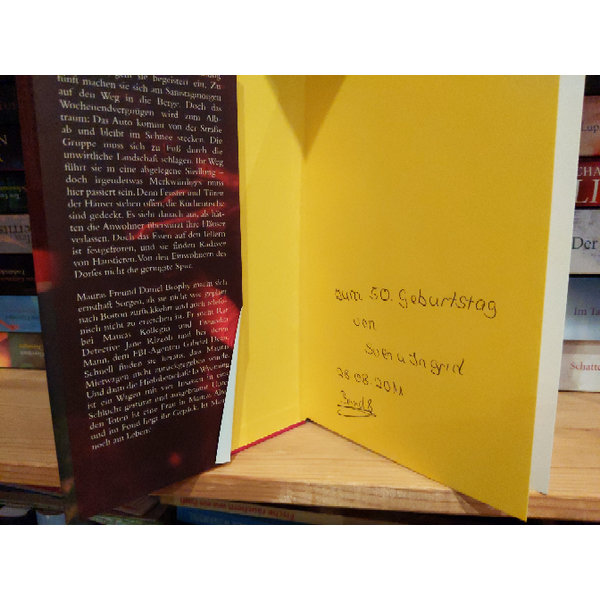 geht sie begeistert ein. Zu
fünft machen sie sich am Samstagmorgen
auf den Weg in die Berge. Doch das
Wochenendvergnügen wird zum Alb-
traum: Das Auto kommt von der Straße
ab und bleibt im Schnee stecken. Die
Gruppe muss sich zu Fuß durch die
unwirtliche Landschaft schlagen. Ihr Weg
führt sie in eine abgelegene Siedlung –
doch irgendetwas Merkwürdiges muss
hier passiert sein. Denn Fenster und Türen
der Häuser stehen offen, die Küchentische
sind gedeckt. Es sieht danach aus, als hät-
ten die Anwohner überstürzt ihre Häuser
verlassen. Doch das Essen auf den Tellern
ist festgefroren, und sie finden Kadaver
von Haustieren. Von den Einwohnern des
Dorfes nicht die geringste Spur.
Mauras Freund Daniel Brophy macht sich
ernsthaft Sorgen, als sie nicht wie geplant
nach Boston zurückkehrt und auch telefo-
nisch nicht zu erreichen ist. Er sucht Rat
bei Mauras Kollegin und Freundin
Detective Jane Rizzoli und bei deren
Mann, dem FBI-Agenten Gabriel Dean.
Schnell finden sie heraus, dass Mauras
Mietwagen nicht zurückgegeben wurde.
Und dann die Hiobsbotschaft: In Wyoming
ist ein Wagen mit vier Insassen in eine
Schlucht gestürzt und ausgebrannt. Unter
den Toten ist eine Frau in Mauras Alter,
und im Fond liegt ihr Gepäck. Ist Maura
noch am Leben?
zum 50. Geburtstag
von
Sven u Ingrid
28.08.2011
Band 8
Lup
CHA
LI
Der
Im Ta
Schatte